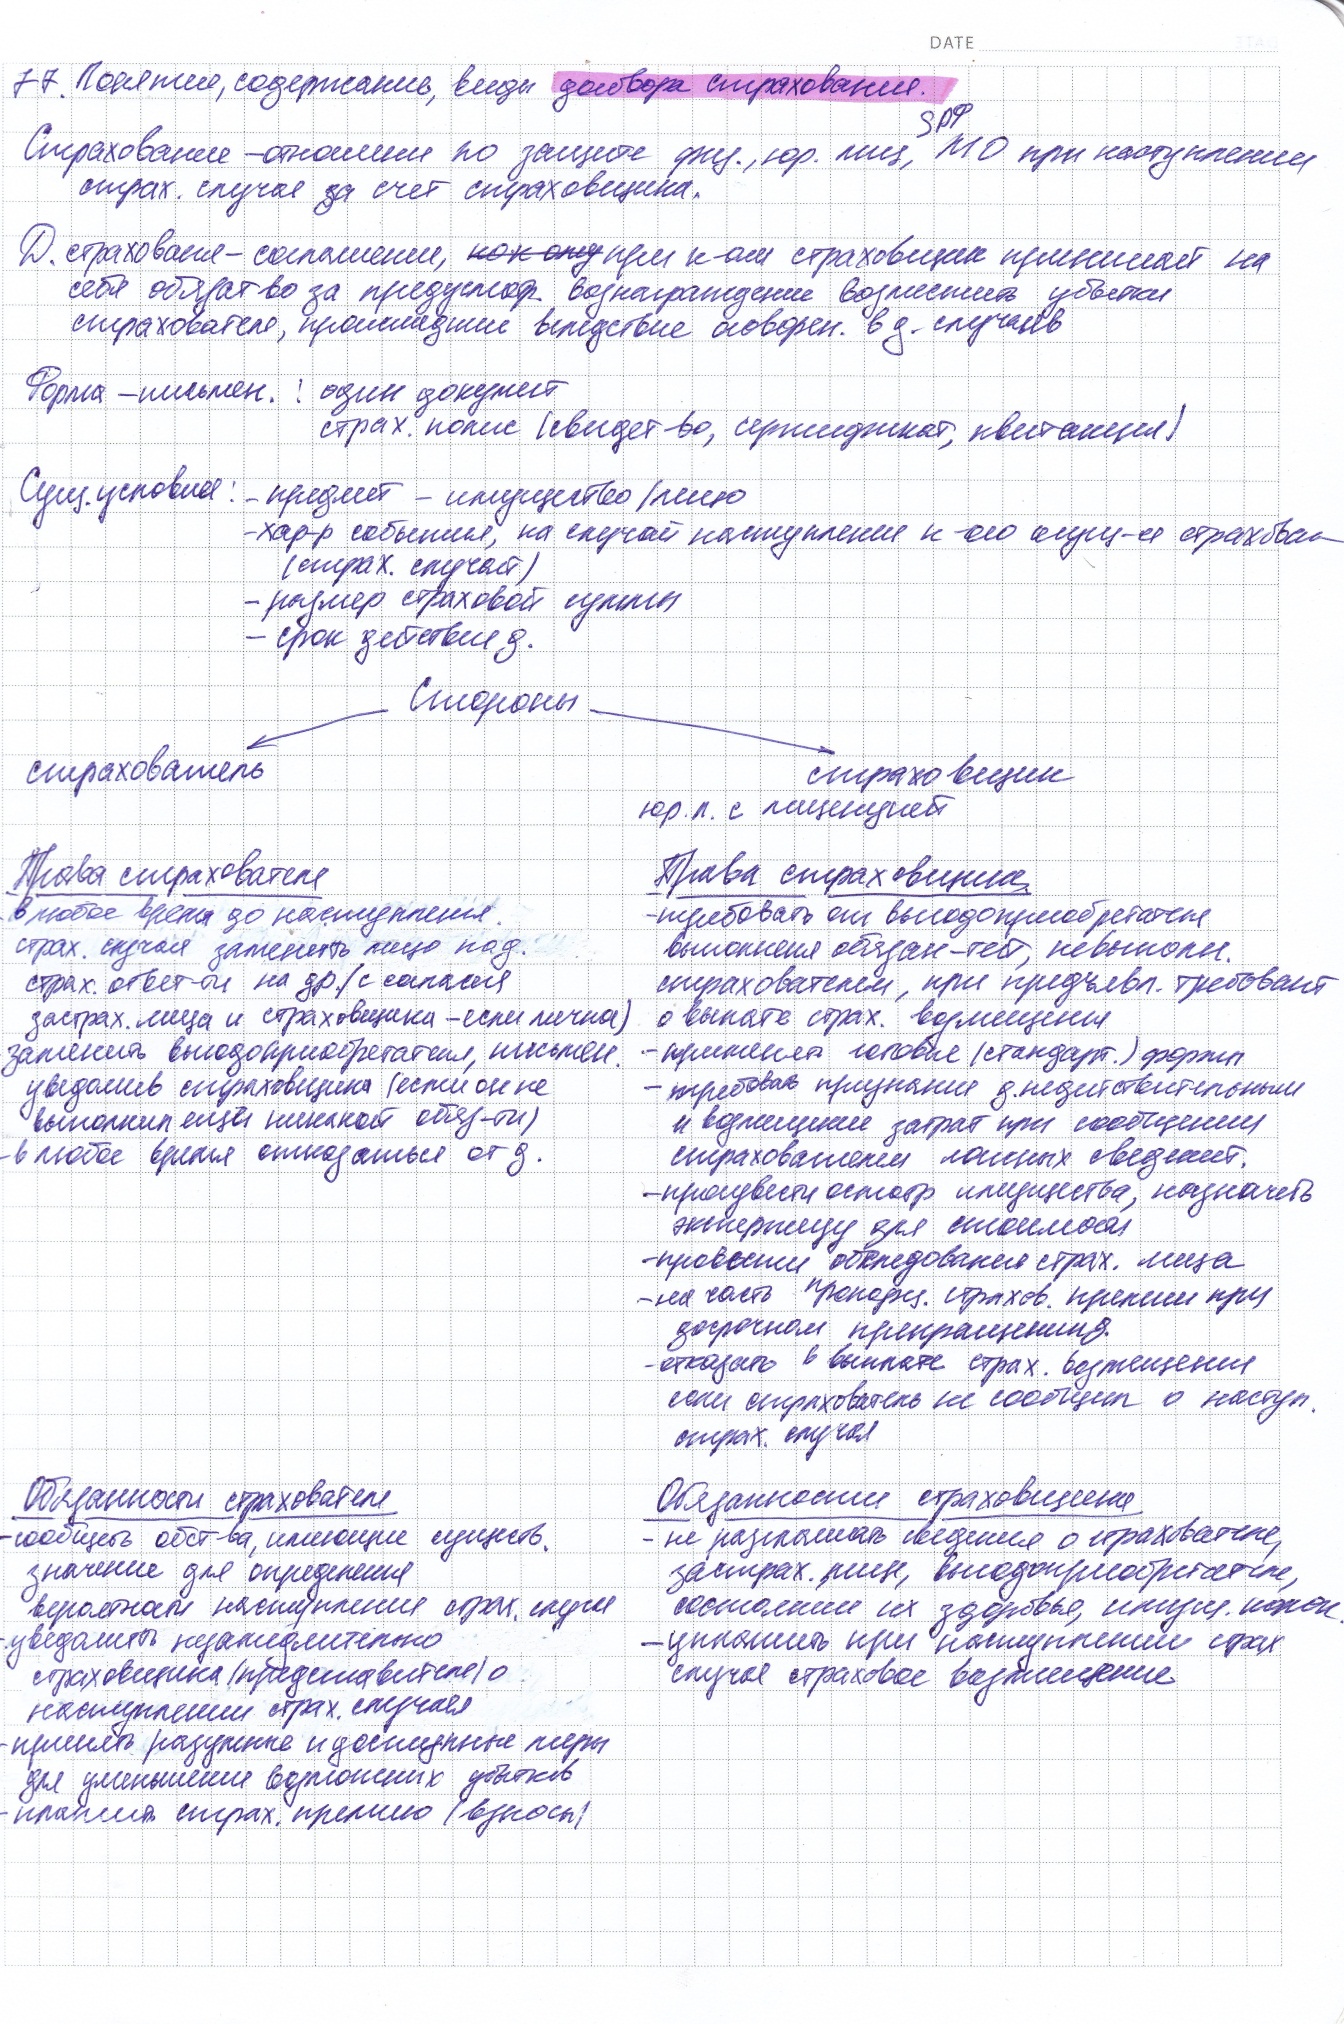 DATE
77. Понятие, содержание, виды договора страхования.
S РФ
Страхование – отношения по защите физ., юр. лиц, МО при наступлении
страх. случая за счет страховщика.
Д. страхования – соглашение, при к-ом страховщик принимает на
себя обязат-во за предусмотр. вознаграждение возместить убытки
страхователя, происшедшие вследствие оговорен. в д. случаев
Форма – письмен. : один документ
страх. полис (свидет-во, сертификат, квитанция)
Сущ. условия: - предмет – имущество/лицо
- хар-р события, на случай наступления к-ого осущ-ся страхован
(страх. случай)
- размер страховой суммы
- срок действия д.
Стороны
страхователь
страховщик
юр. л. с лицензией
Права страхователя
в любое время до наступления
страх. случая заменить лицо по д.
страх. ответ-ти на др. (с согласия
застрах. лица и страховщика – если личная)
заменить выгодоприобретателя, письмен.
уведомив страховщика (если он не
выполнил ещё никакой обяз-ти)
- в любое время отказаться от д.
Права страховщика
- требовать от выгодоприобретателя
выполнения обязан-тей, невыполн.
страхователем, при предъявл. требований
о выплате страх. возмещения
- применять готовые (стандарт.) формы
- требовать признания д. недействительным
и возмещение затрат при сообщении
страхователем ложных сведений.
- произвести осмотр имущества, назначить
экспертизу для стоимости
- провести обследование страх. лица
- на часть пропорц. страхов. премии при
досрочном прекращении д.
- отказать в выплате страх. возмещения
если страхователь не сообщил о наступ.
страх. случая
Обязанности страхователя
- сообщить обст-ва, имеющие существ.
значение для определения
вероятности наступления страх. случая
- уведомить незамедлительно
страховщика (представителя) о
наступлении страх. случая
- принять разумные и доступные меры
для уменьшения возможных убытков
- платить страх. премию (взносы)
Обязанности страховщика
- не разглашать сведения о страхователе,
застрах. лице, выгодоприобретателе,
состоянии их здоровья, имущ. полож.
- уплатить при наступлении страх
случая страховое возмещение